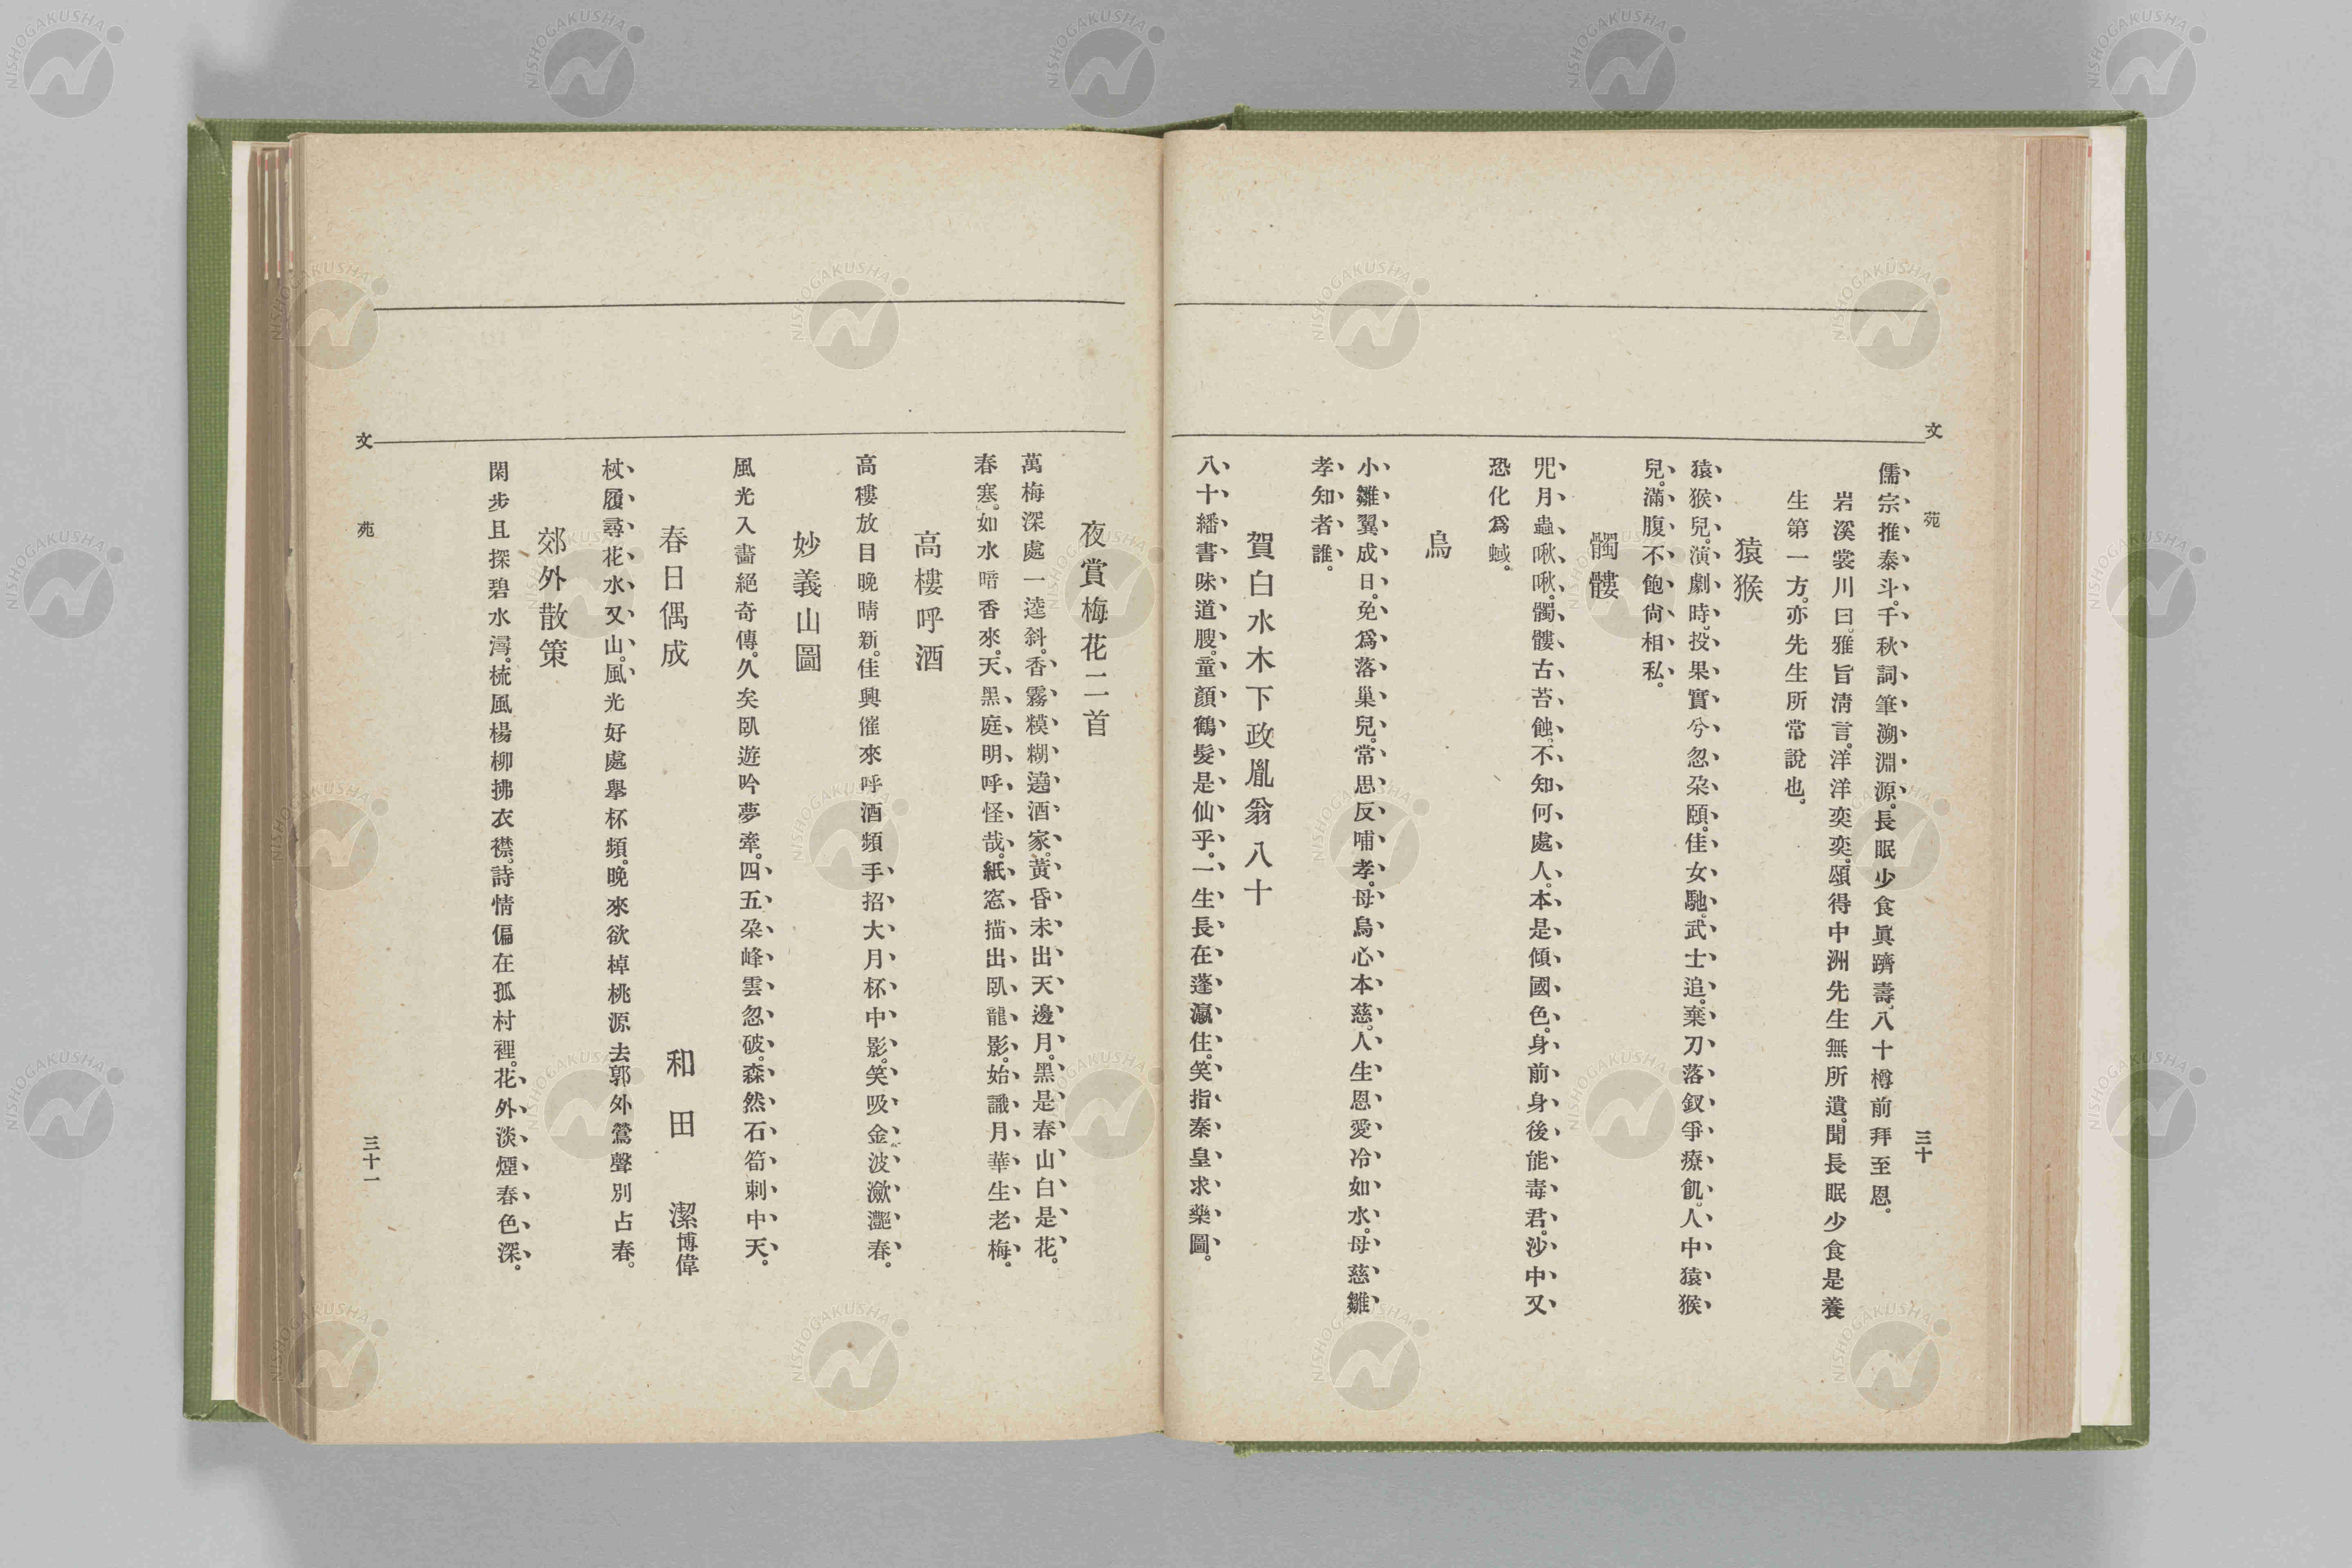 文苑
三十
儒宗推泰斗。千秋詞筆溯淵源。長眠少食眞躋壽。八十樽前拜至恩。
岩溪裳川曰。雅旨淸言。洋洋奕奕。頌得中洲先生無所遺。聞長眠少食是養
生第一方。亦先生所常說也。
猿猴
猿猴兒。演劇時。投果實兮忽朶頤。佳女馳。武士追。棄刀落釵爭療飢。人中猿猴
兒。滿腹不飽尙相私。
髑髏
咒月蟲啾啾。髑髏古苔蝕。不知何處人。本是傾國色。身前身後能毒君。沙中又
恐化爲蜮。
烏
小雛翼成日。免爲落巢兒。常思反哺孝。母烏心本慈。人生恩愛冷如水。母慈雛
孝知者誰。
賀白水木下政胤翁八十
八十繙書味道腴。童顏鶴髮是仙乎。一生長在蓬瀛住。笑指秦皇求藥圖。
夜賞梅花二首
萬梅深處一逵斜。香霧糢糊遶酒家。黃昏未出天邊月。黑是春山白是花。
春寒。如水暗香來。天黑庭明呼怪哉。紙窓描出臥龍影。始識月華生老梅。
高樓呼酒
高樓放目晚晴新。佳興催來呼酒頻。手招大月杯中影。笑吸金波瀲灔春。
妙義山圖
風光入畵絕奇傳。久矣臥遊吟夢牽。四五朶峰雲忽破。森然石筍刺中天。
春日偶成
和田潔博偉
杖履尋花水又山。風光好處擧杯頻。晚來欲棹桃源去。郭外鶯聲別占春。
郊外散策
閑步且探碧水潯。梳風楊柳拂衣襟。詩情偏在孤村裡。花外淡煙春色深。
文苑
三十一
NISHOGAKUSHA